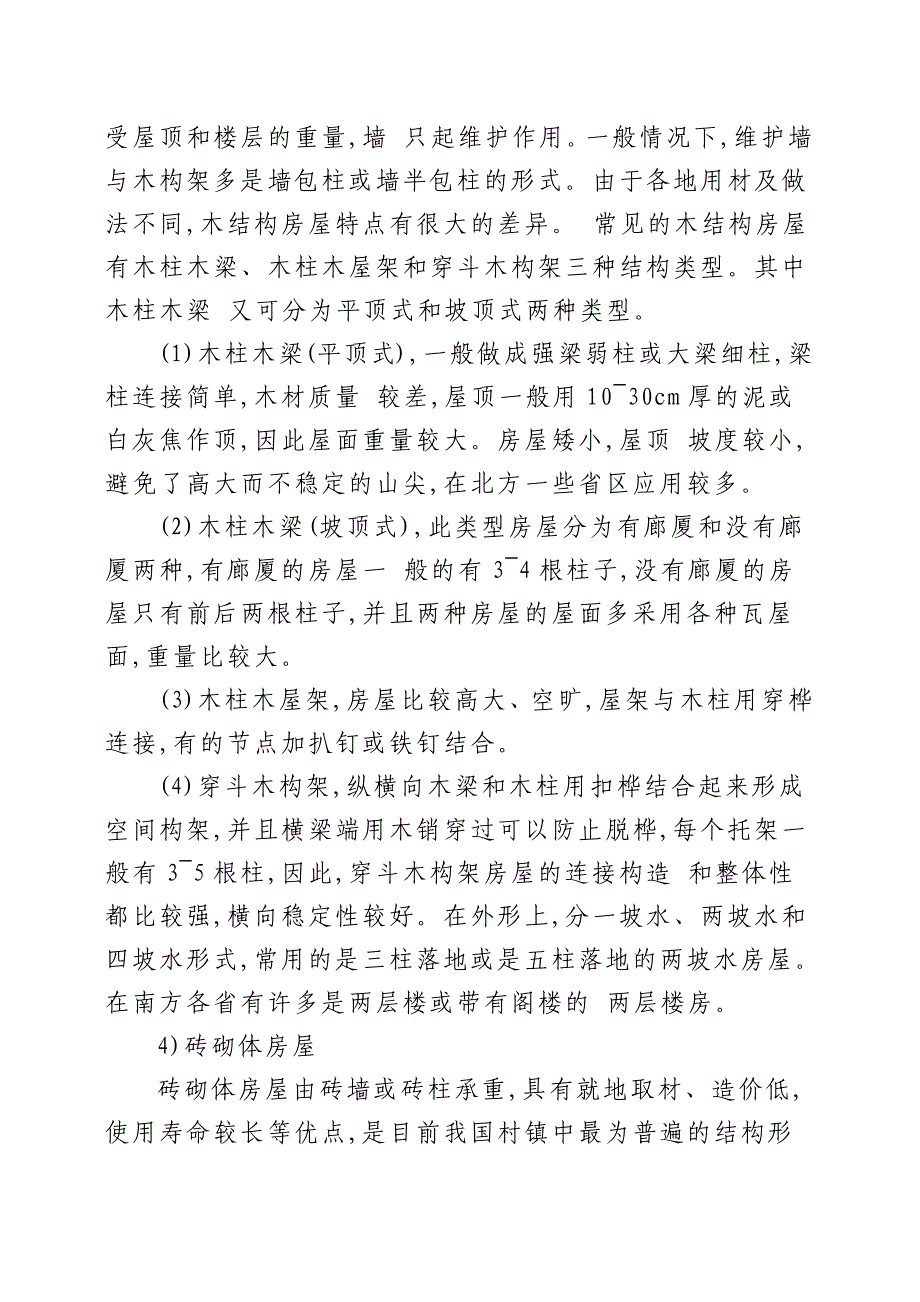 受屋顶和楼层的重量,墙 只起维护作用。一般情况下,维护墙
与木构架多是墙包柱或墙半包柱的形式。由于各地用材及做
法不同,木结构房屋特点有很大的差异。 常见的木结构房屋
有木柱木梁、木柱木屋架和穿斗木构架三种结构类型。其中
木柱木梁 又可分为平顶式和坡顶式两种类型。
(1)木柱木梁(平顶式),一般做成强梁弱柱或大梁细柱,梁
柱连接简单,木材质量 较差,屋顶一般用10¯30cm厚的泥或
白灰焦作顶,因此屋面重量较大。房屋矮小,屋顶 坡度较小,
避免了高大而不稳定的山尖,在北方一些省区应用较多。
(2)木柱木梁(坡顶式),此类型房屋分为有廊厦和没有廊
厦两种,有廊厦的房屋一 般的有3¯4根柱子,没有廊厦的房
屋只有前后两根柱子,并且两种房屋的屋面多采用各种瓦屋
面,重量比较大。
(3)木柱木屋架,房屋比较高大、空旷,屋架与木柱用穿桦
连接,有的节点加扒钉或铁钉结合。
(4)穿斗木构架,纵横向木梁和木柱用扣桦结合起来形成
空间构架,并且横梁端用木销穿过可以防止脱桦,每个托架一
般有3¯5根柱,因此,穿斗木构架房屋的连接构造 和整体性
都比较强,横向稳定性较好。在外形上,分一坡水、两坡水和
四坡水形式,常用的是三柱落地或是五柱落地的两坡水房屋。
在南方各省有许多是两层楼或带有阁楼的 两层楼房。
4)砖砌体房屋
砖砌体房屋由砖墙或砖柱承重,具有就地取材、造价低,
使用寿命较长等优点,是目前我国村镇中最为普遍的结构形